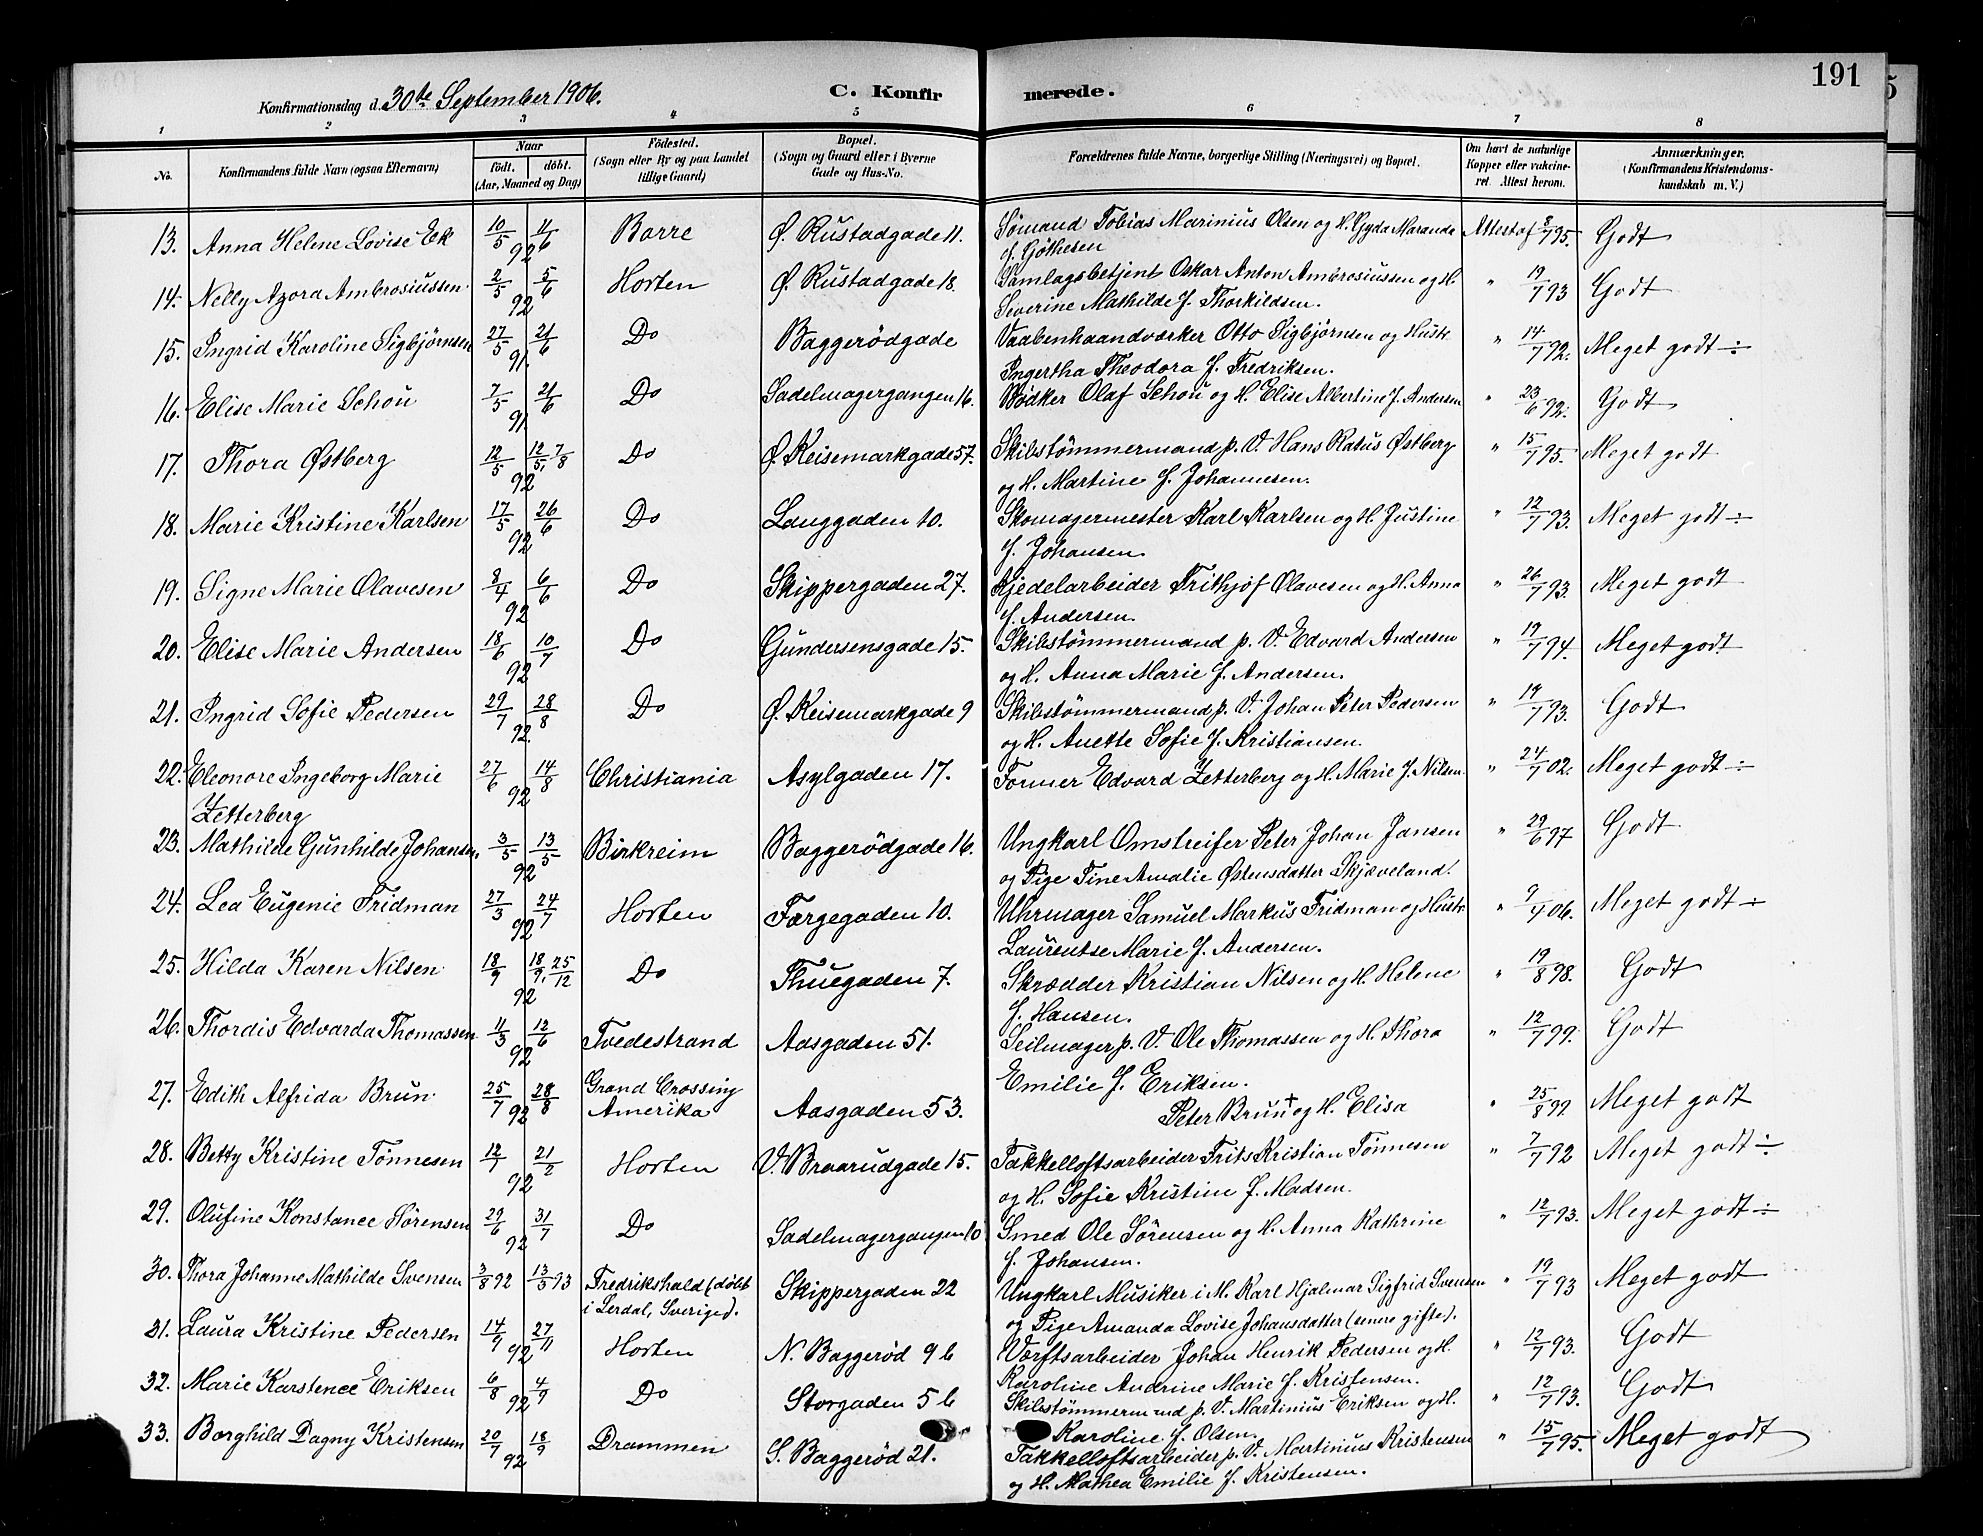 191
Konfirmationsdag d. 30te September 1906.
C. Konfirmerede.
1 2 3 4 5 6 7 8
No. Konfirmandens fulde Navn (ogsaa Efternavn) Naar født, døbt. (Aar, Maaned og Dag) Fødested. (Sogn eller By og paa Landet tillige Gaard) Bopæl. (Sogn og Gaard eller i Byerne Gade og Hus-No. Forældrenes fulde Navne, borgerlige Stilling (Næringsvei) og Bopæl. Om havt de naturlige Kopper eller vakcineret. Attest herom. Anmærkninger. (Konfirmandens Kristendomskundskab m. V.)
13. Anna Helene Lovise Ek 10/5 92 11/6 Borre Ø. Rustadgade 11. Sømand Tobias Marinius Olsen og H. Gyda Marande
f. Gøthesen Attest af 8/7 95. Godt
14. Nelly Azora Ambrosiussen 2/5 92 5/6 Horten Ø. Rustadgade 18. Samlagsbetjent Oskar Anton Ambrosiussen og H.
Severine Mathilde f. Thorkildsen. " 19/7 93 Godt
15. Ingrid Karoline Sigbjørnsen 27/5 91. 21/6 Do Baggerødgade Vaabenhaandværker Otto Sigbjørnsen og Hustr.
Ingertha Theodora f. Fredriksen. " 14/7 92. Meget godt ÷
16. Elise Marie Schou 7/5 91 21/6 Do Sadelmagergangen 16. Bødker Olaf Schou og H. Elise Albertine f. Andersen " 23/6 92. Godt
17. Thora Østberg 12/5 92 12/5, 7/8 Do Ø. Keisemarkgade 57. Skibstømmermand p. V. Hans Ratus Østberg
og H. Martine f. Johannesen. " 15/7 95. Meget godt
18. Marie Kristine Karlsen 17/5 92 26/6 Do Langgaden 10. Skomagermester Karl Karlsen og H. Justine
f. Johansen. " 12/7 93. Meget godt ÷
19. Signe Marie Olavesen 8/4 92 6/6 Do Skippergaden 27. Kjedelarbeider Frithjof Olavesen og H. Anna
f. Andersen. " 26/7 93. Meget godt
20. Elise Marie Andersen 18/6 92 10/7 Do Gundersensgade 15. Skibstømmermand p. V. Edvard Andersen
og H. Anna Marie f. Andersen. " 19/7 94. Meget godt
21. Ingrid Sofie Pedersen 29/7 92. 28/8 Do Ø. Keisemarkgade 9 Skibstømmermand p. V. Johan Peter Pedersen
og H. Anette Sofie f. Kristiansen. " 19/7 93. Godt
22. Eleonore Ingeborg Marie
Zetterberg 27/6 92 14/8 Christiania Asylgaden 17. Former Edvard Zetterberg og H. Marie f. Nilsen " 24/7 02. Meget godt ÷
23. Mathilde Gunhilde Johansen. 3/5 92 13/5 Birkreim Baggerødgade 16. Ungkarl Omstreifer Peter Johan Jansen
og Pige Tine Amalie Østensdatter Skjæveland. " 29/6 97 Godt
24. Lea Eugenie Fridman 27/3 92 24/7 Horten Færgegaden 10. Uhrmager Samuel Markus Fridman og Hustr.
Laurentse Marie f. Andersen. " 9/4 06. Meget godt ÷
25. Hilda Karen Nilsen 18/9 92 18/9, 25/12 Do Thuegaden 7. Skrædder Kristian Nilsen og H. Helene
f. Hansen. " 19/8 98. Godt
26. Thordis Edvarda Thomassen 11/3 92 12/6 Tvedestrand Aasgaden 51. Seilmager p. V. Ole Thomassen og H. Thora
Emilie f. Eriksen. " 12/7 99. Godt
27. Edith Alfrida Brun 25/7 92 28/8 Grand Crossing
Amerika Aasgaden 53. Peter Brun + og H. Elisa " 25/8 92 Meget godt
28. Betty Kristine Tønnesen 12/7 92 21/2 Horten V. Braarudgade 15. Takkelloftsarbeider Frits Kristian Tønnesen
og H. Sofie Kristine f. Madsen. " 7/7 92 Meget godt ÷
29. Olufine Konstance Sørensen 29/6 92 31/7 Do Sadelmagergangen 10 Smed Ole Sørensen og H. Anna Kathrine
f. Johansen. " 12/7 93. Meget godt ÷
30. Thora Johanne Mathilde Svensen 3/8 92 13/5 93 Fredrikshald (døbt
i Lerdal, Sverige). Skippergaden 22 Ungkarl Musiker i M. Karl Hjalmar Sigfrid Svensen
og Pige Amanda Lovise Johansdatter (senere gifte). " 19/7 93 Meget godt
31. Laura Kristine Pedersen 14/9 92 27/11 Horten N. Baggerød 9 b Værftsarbeider Johan Henrik Pedersen og H.
Karoline Andrine Marie f. Kristensen. " 12/7 93. Godt
32. Marie Karstence Eriksen 6/8 92 4/9 Do Storgaden 5 b Skibstømmermand p. V. Martinius Eriksen og H.
Karoline f. Olsen. " 12/7 93. Godt
33. Borghild Dagny Kristensen 20/7 92 18/9 Drammen S. Baggerød 21. Takkelloftsarbeider p. V. Martinius Kristensen
og H. Mathea Emilie f. Kristensen. " 15/7 95. Meget godt